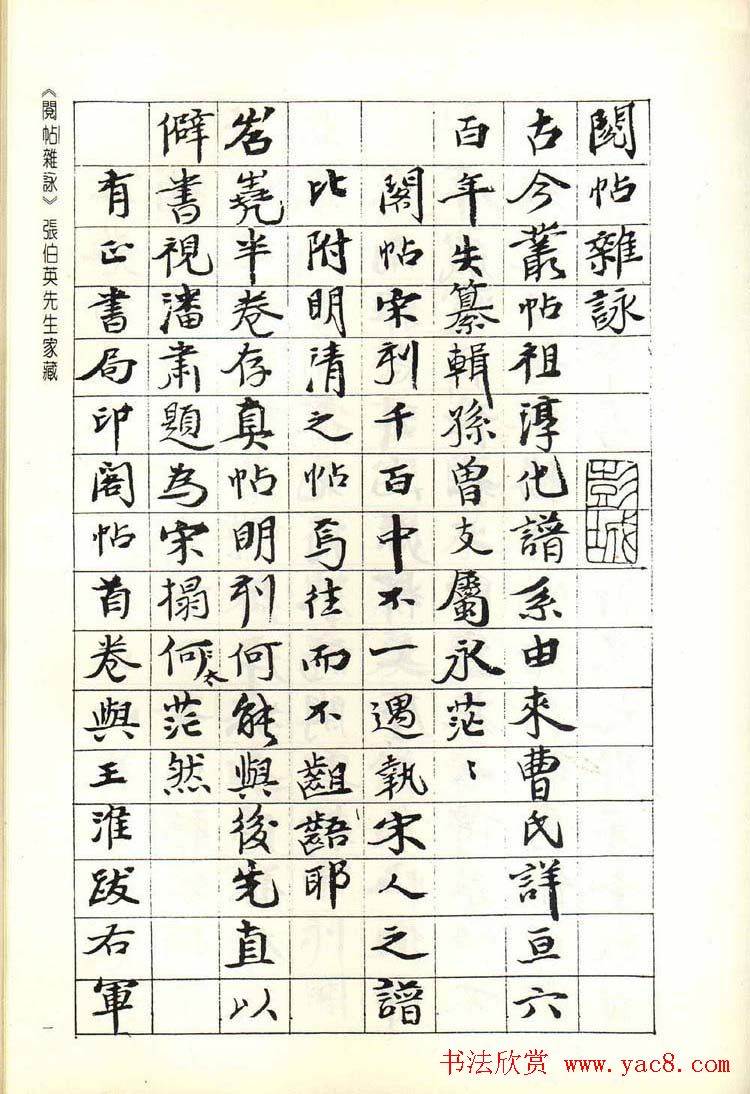 閱帖雜詠
彭城
古今叢帖祖淳化譜系由來曹氏詳亘六
百年失纂輯孫曾支屬永茫〻
閣帖宋刋千百中不一遇執宋人之譜
比附明清之帖焉往而不齟齬耶
岧嶤半卷存真帖明刋何能與後先直以
僻書視潘肅題為宋搨何太茫然
有正書局印閣帖首卷與王淮跋右軍
《閱帖雜詠》張伯英先生家藏
一
书法欣赏 www.yac8.com